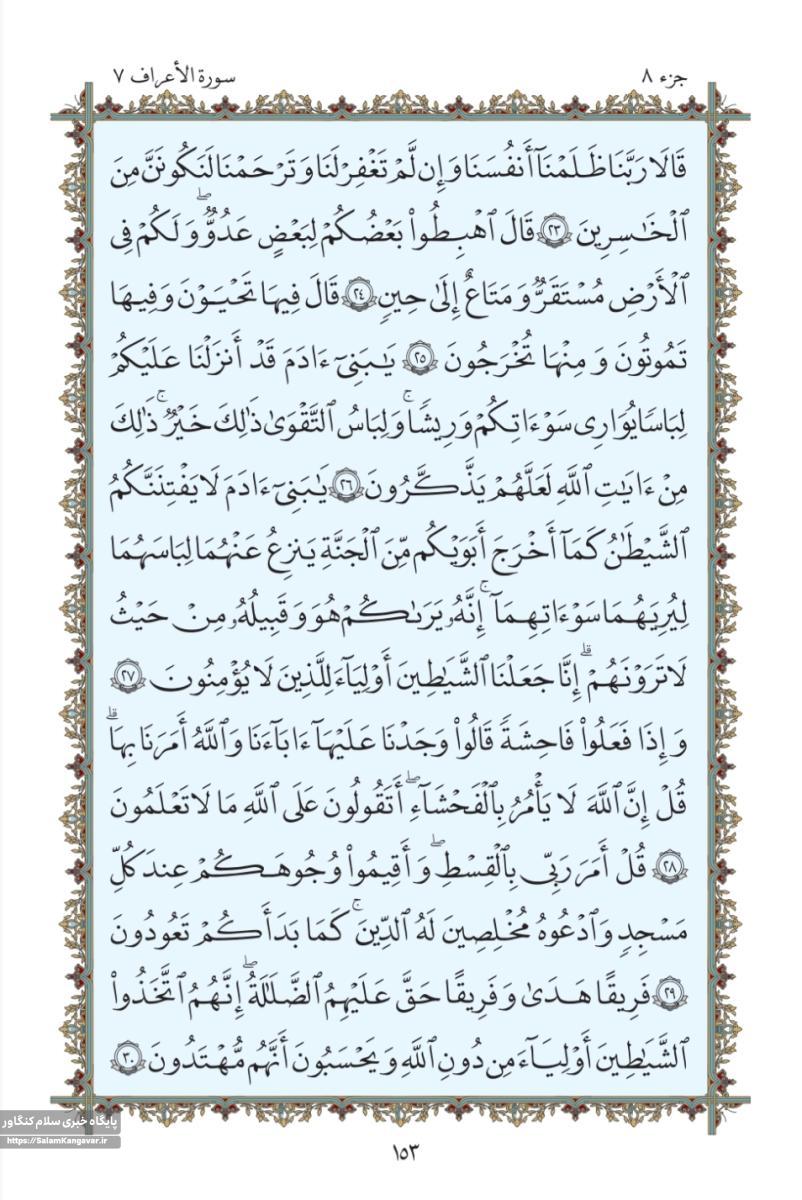 جزء ٨
سورة الأعراف ٧
قَالَا رَبَّنَا ظَلَمْنَآ أَنفُسَنَا وَإِن لَّمْ تَغْفِرْ لَنَا وَتَرْحَمْنَا لَنَكُونَنَّ مِنَ
ٱلْخَـٰسِرِينَ ٢٣ قَالَ ٱهْبِطُوا۟ بَعْضُكُمْ لِبَعْضٍ عَدُوٌّ ۖ وَلَكُمْ فِى
ٱلْأَرْضِ مُسْتَقَرٌّ وَمَتَاعٌ إِلَىٰ حِينٍ ٢٤ قَالَ فِيهَا تَحْيَوْنَ وَفِيهَا
تَمُوتُونَ وَمِنْهَا تُخْرَجُونَ ٢٥ يَـٰبَنِىٓ ءَادَمَ قَدْ أَنزَلْنَا عَلَيْكُمْ
لِبَاسًا يُوَٰرِى سَوْءَٰتِكُمْ وَرِيشًا ۖ وَلِبَاسُ ٱلتَّقْوَىٰ ذَٰلِكَ خَيْرٌ ۚ ذَٰلِكَ
مِنْ ءَايَـٰتِ ٱللَّهِ لَعَلَّهُمْ يَذَّكَّرُونَ ٢٦ يَـٰبَنِىٓ ءَادَمَ لَا يَفْتِنَنَّكُمُ
ٱلشَّيْطَـٰنُ كَمَآ أَخْرَجَ أَبَوَيْكُم مِّنَ ٱلْجَنَّةِ يَنزِعُ عَنْهُمَا لِبَاسَهُمَا
لِيُرِيَهُمَا سَوْءَٰتِهِمَآ ۚ إِنَّهُۥ يَرَىٰكُمْ هُوَ وَقَبِيلُهُۥ مِنْ حَيْثُ
لَا تَرَوْنَهُمْ ۗ إِنَّا جَعَلْنَا ٱلشَّيَـٰطِينَ أَوْلِيَآءَ لِلَّذِينَ لَا يُؤْمِنُونَ ٢٧
وَإِذَا فَعَلُوا۟ فَـٰحِشَةً قَالُوا۟ وَجَدْنَا عَلَيْهَآ ءَابَآءَنَا وَٱللَّهُ أَمَرَنَا بِهَا ۗ
قُلْ إِنَّ ٱللَّهَ لَا يَأْمُرُ بِٱلْفَحْشَآءِ ۖ أَتَقُولُونَ عَلَى ٱللَّهِ مَا لَا تَعْلَمُونَ
٢٨ قُلْ أَمَرَ رَبِّى بِٱلْقِسْطِ ۖ وَأَقِيمُوا۟ وُجُوهَكُمْ عِندَ كُلِّ
مَسْجِدٍ وَٱدْعُوهُ مُخْلِصِينَ لَهُ ٱلدِّينَ ۚ كَمَا بَدَأَكُمْ تَعُودُونَ
٢٩ فَرِيقًا هَدَىٰ وَفَرِيقًا حَقَّ عَلَيْهِمُ ٱلضَّلَـٰلَةُ ۗ إِنَّهُمُ ٱتَّخَذُوا۟
ٱلشَّيَـٰطِينَ أَوْلِيَآءَ مِن دُونِ ٱللَّهِ وَيَحْسَبُونَ أَنَّهُم مُّهْتَدُونَ ٣٠
پایگاه خبری سلام کنگاور
https://SalamKangavar.ir
١٥٣